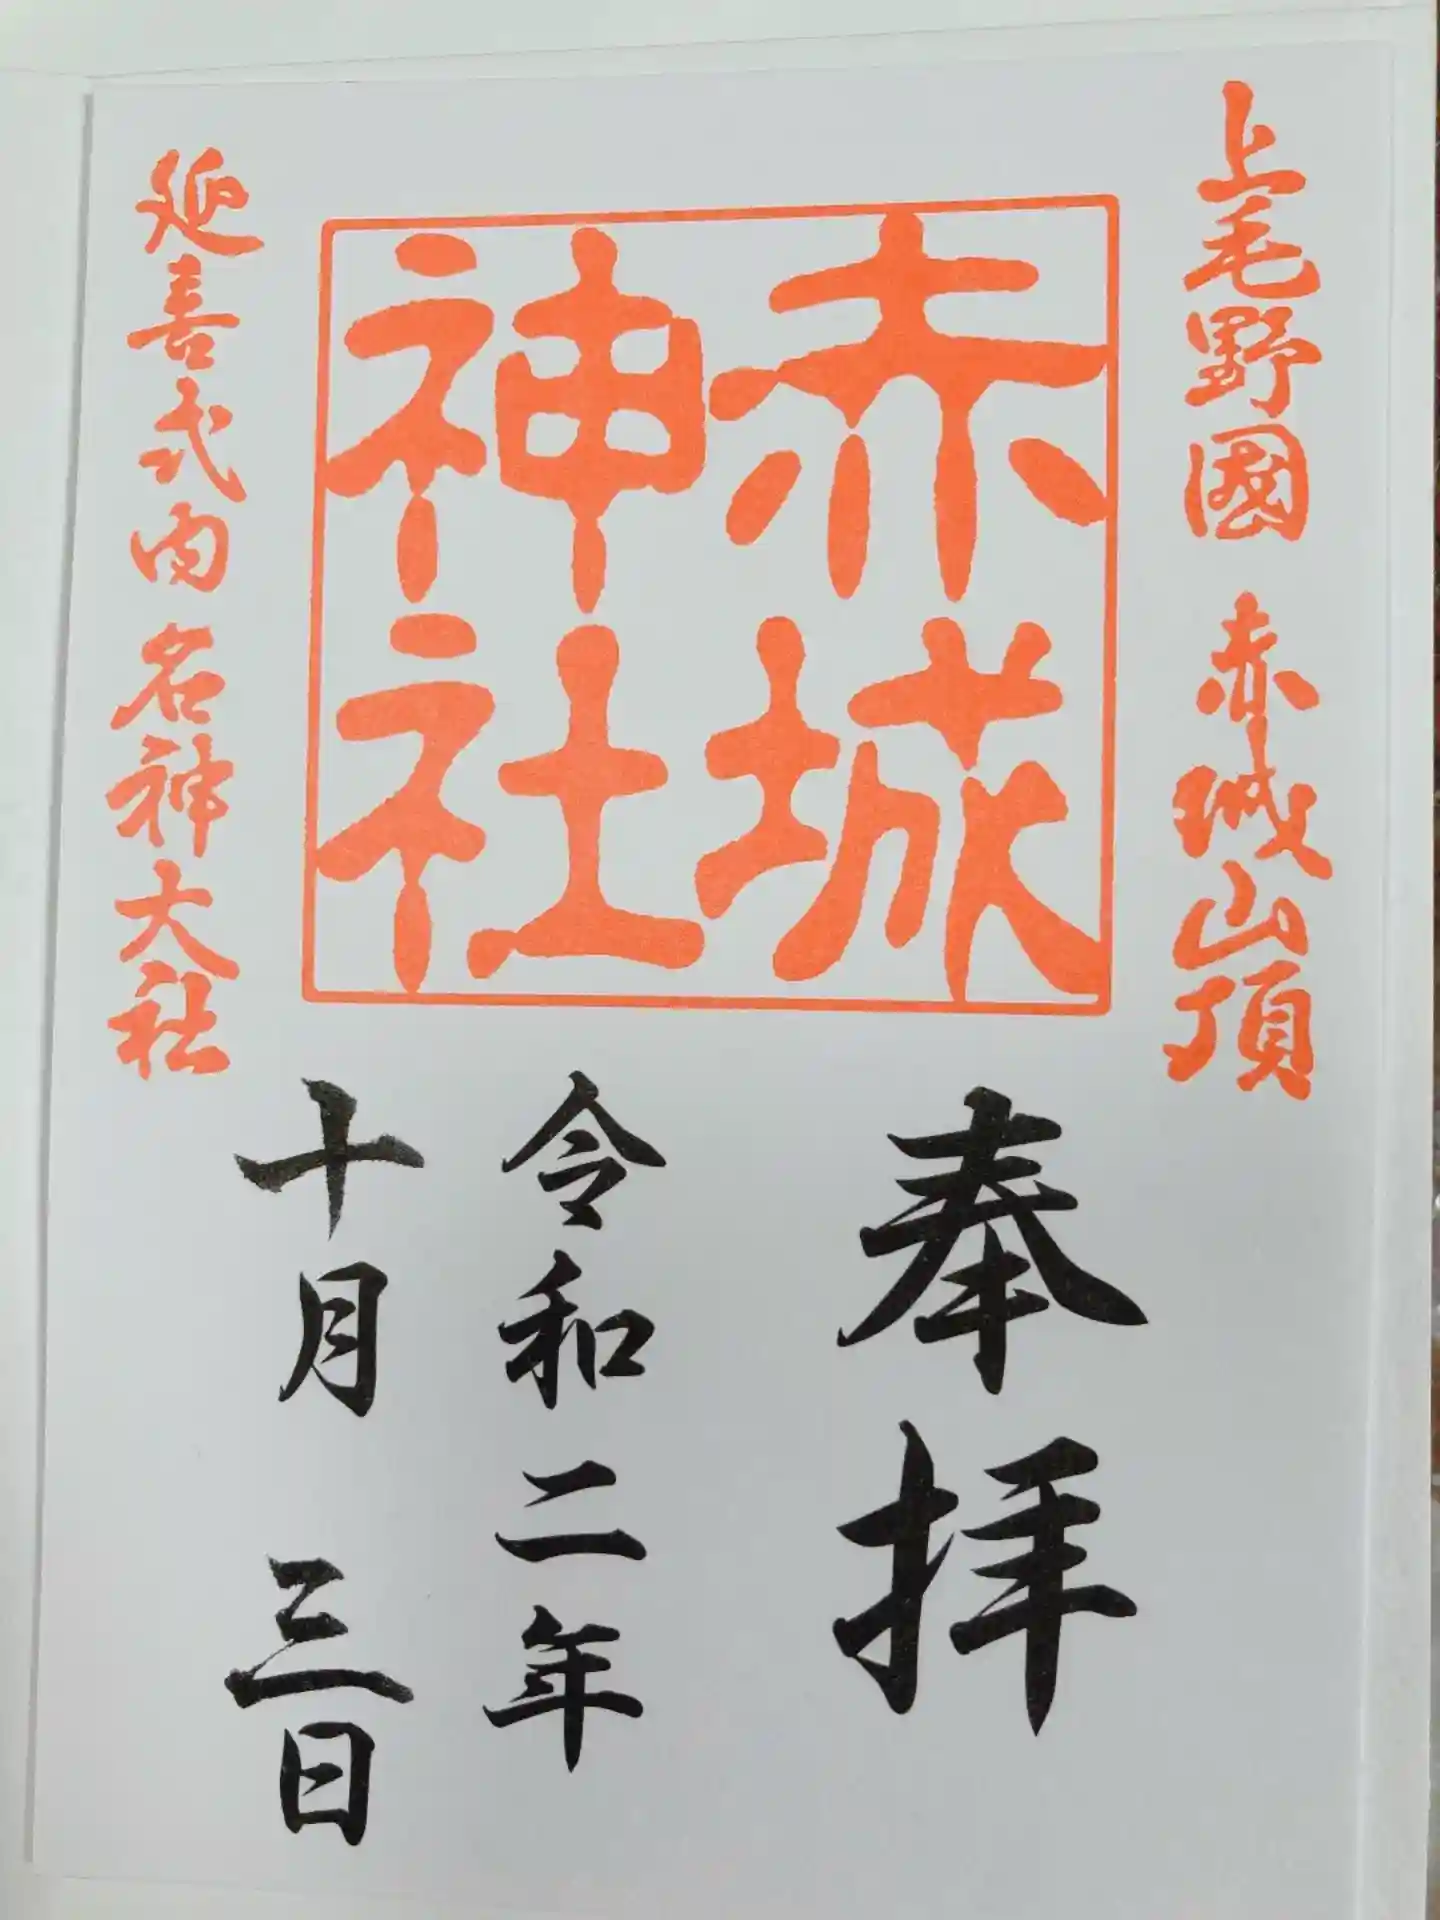 上毛野國 赤城山頂
赤城
神社
延喜式内 名神大社
奉拝
令和二年
十月 三日